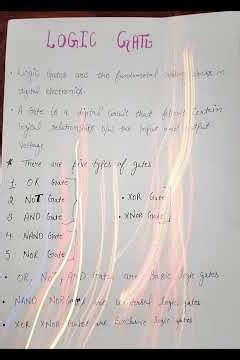 LOGIC GATE
• Logic Gates are the fundamental building blocks in
digital electronics.
• A Gate is a digital circuit that follows certain
logical relationships b/w the input and output
voltage
* There are five types of gates
1. OR Gate
2 NOT Gate • XOR Gate
3 AND Gate • XNOR Gate
4 NAND Gate
5 NOR Gate
• OR, NOT, AND Gates are basic logic gates
• NAND NOR Gates are universal logic gates
• XOR XNOR Gates are Exclusive logic gates